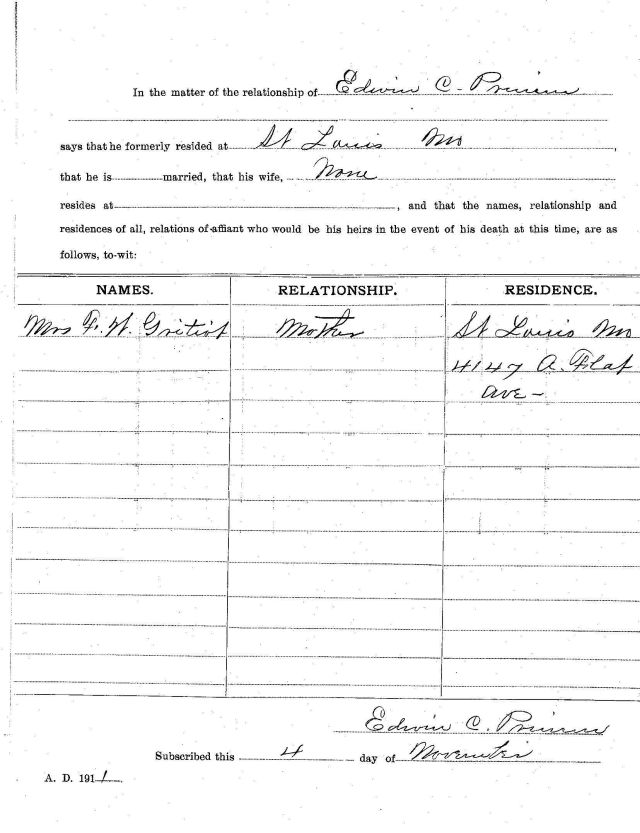 In the matter of the relationship of Edwin C.
says that he formerly resided at St Louis Mo,
that he is married, that his wife, None
resides at , and that the names, relationship and
residences of all, relations of affiant who would be his heirs in the event of his death at this time, are as
follows, to-wit:
NAMES. RELATIONSHIP. RESIDENCE.
Mrs F. W. Mother St Louis Mo
4147 A.
Ave -
Edwin C.
Subscribed this 4 day of November
A. D. 1911.